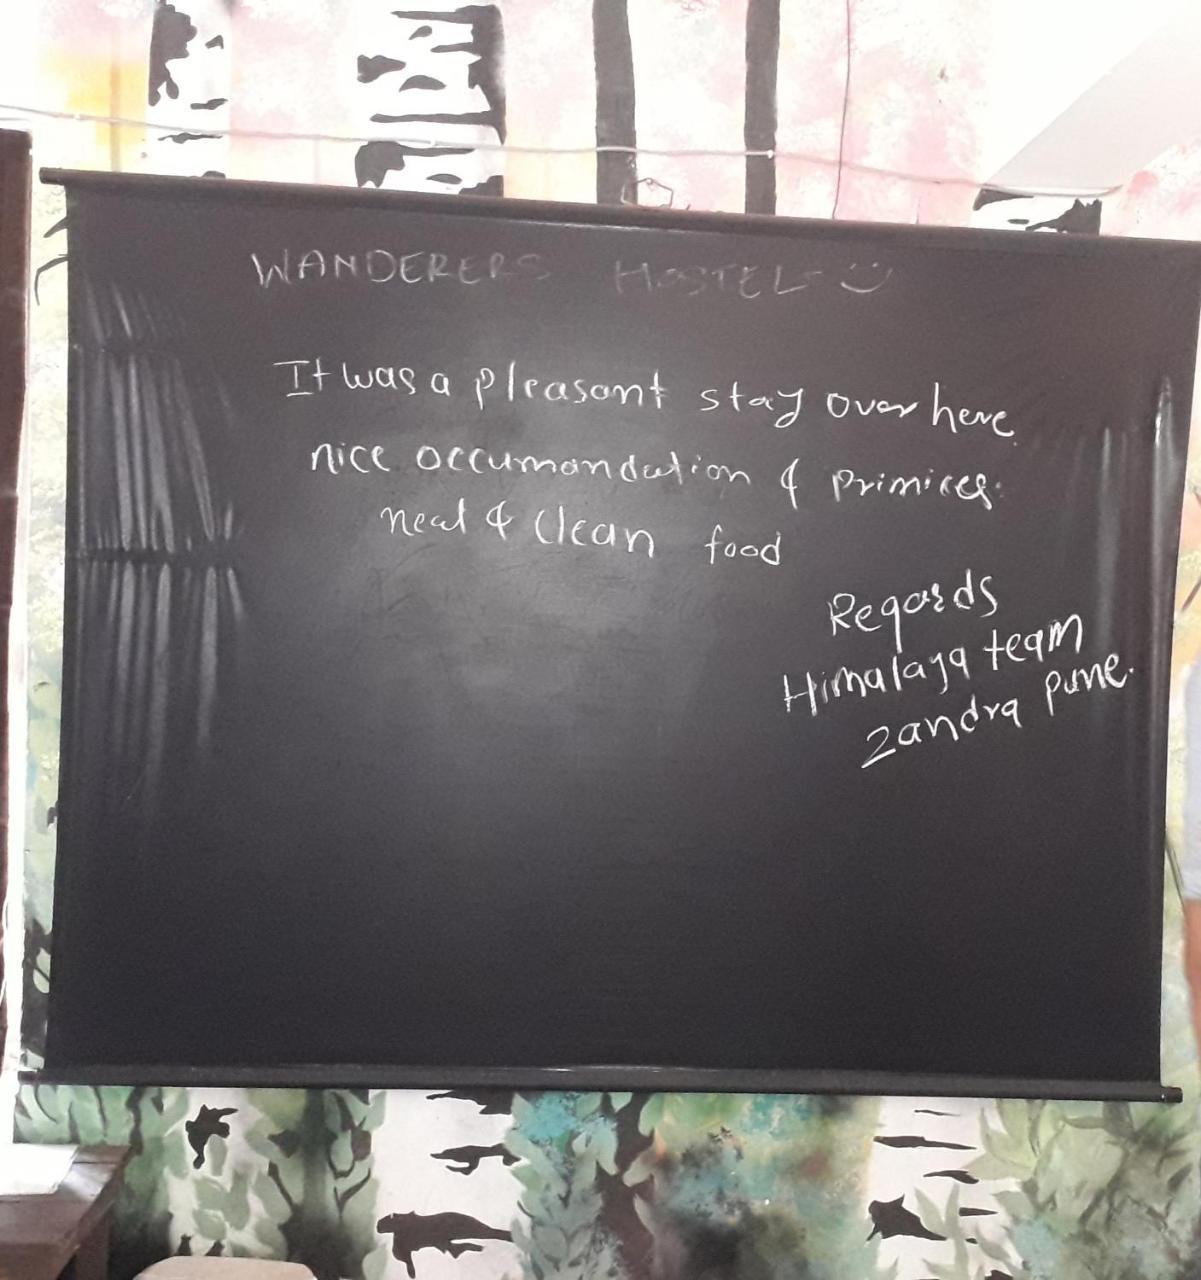 WANDERERS HOSTEL :)
It was a pleasant stay over here
nice occumandation & primices.
neat & clean food
Regards
Himalaya team
Zandra Pune.